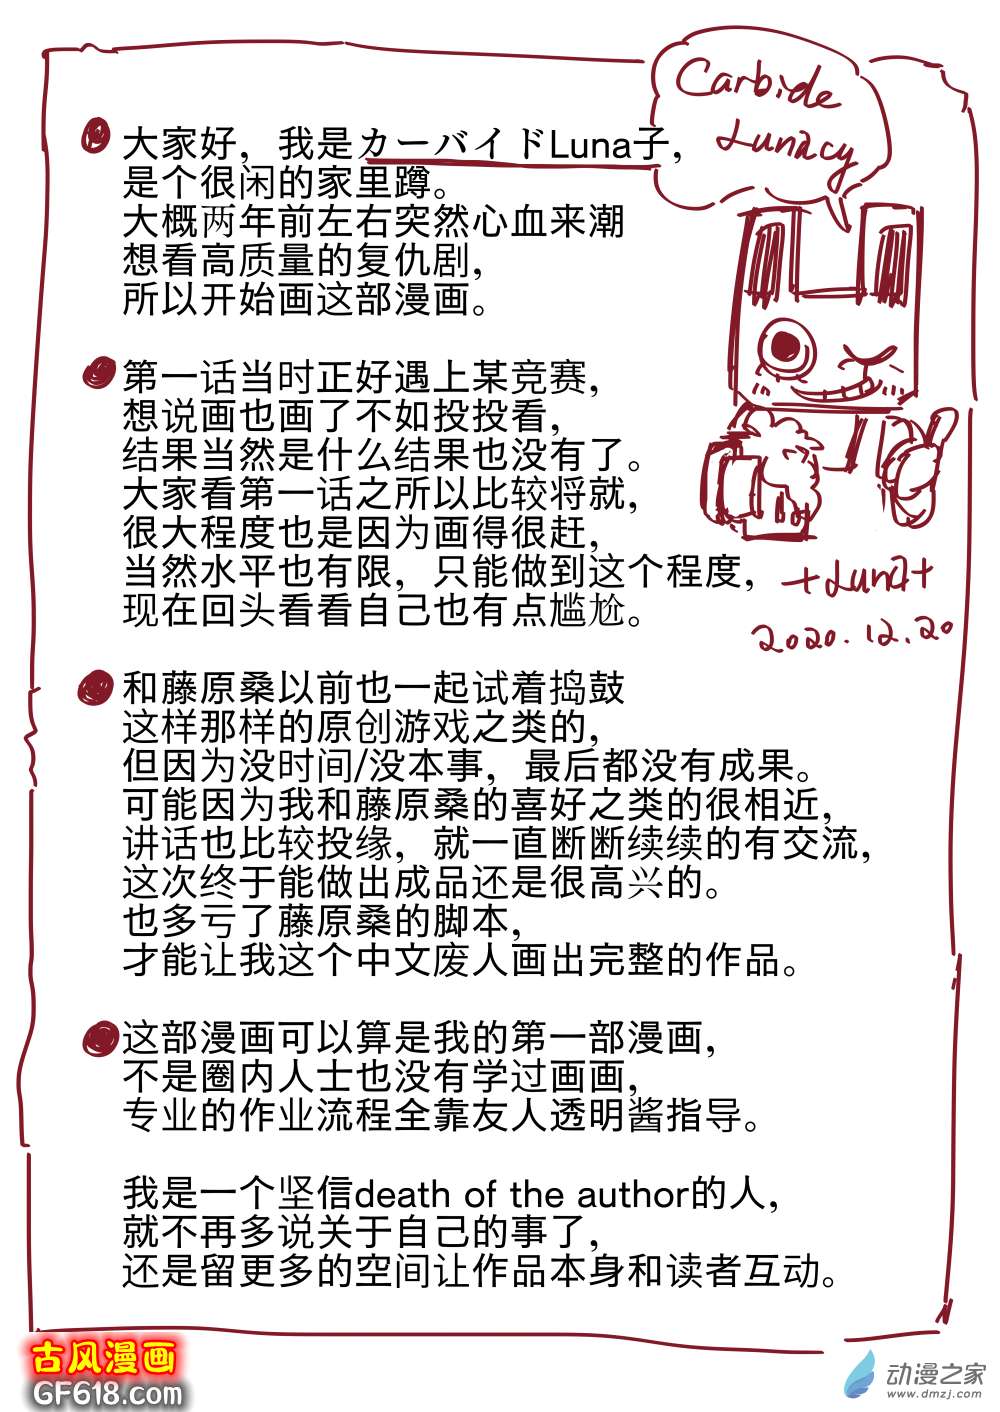 Carbide
Lunacy
大家好，我是カーバイドLuna子，
是个很闲的家里蹲。
大概两年前左右突然心血来潮
想看高质量的复仇剧，
所以开始画这部漫画。
第一话当时正好遇上某竞赛，
想说画也画了不如投投看，
结果当然是什么结果也没有了。
大家看第一话之所以比较将就，
很大程度也是因为画得很赶，
当然水平也有限，只能做到这个程度，
现在回头看看自己也有点尴尬。
+Luna+
2020.12.20
和藤原桑以前也一起试着捣鼓
这样那样的原创游戏之类的，
但因为没时间/没本事，最后都没有成果。
可能因为我和藤原桑的喜好之类的很相近，
讲话也比较投缘，就一直断断续续的有交流，
这次终于能做出成品还是很高兴的。
也多亏了藤原桑的脚本，
才能让我这个中文废人画出完整的作品。
这部漫画可以算是我的第一部漫画，
不是圈内人士也没有学过画画，
专业的作业流程全靠友人透明酱指导。
我是一个坚信death of the author的人，
就不再多说关于自己的事了，
还是留更多的空间让作品本身和读者互动。
古风漫画
GF618.com
动漫之家
www.dmzj.com